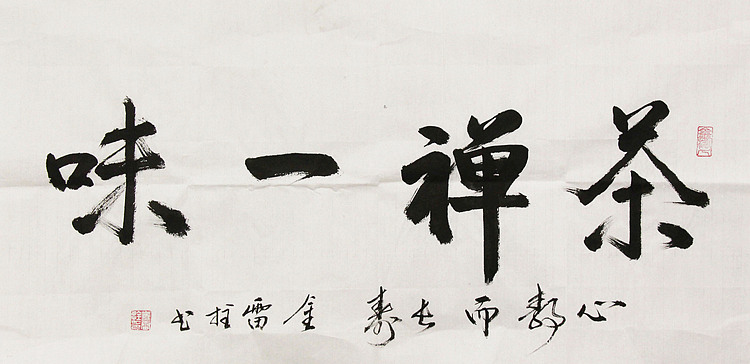 茶禅一味
心静而长寿 金雷柱书